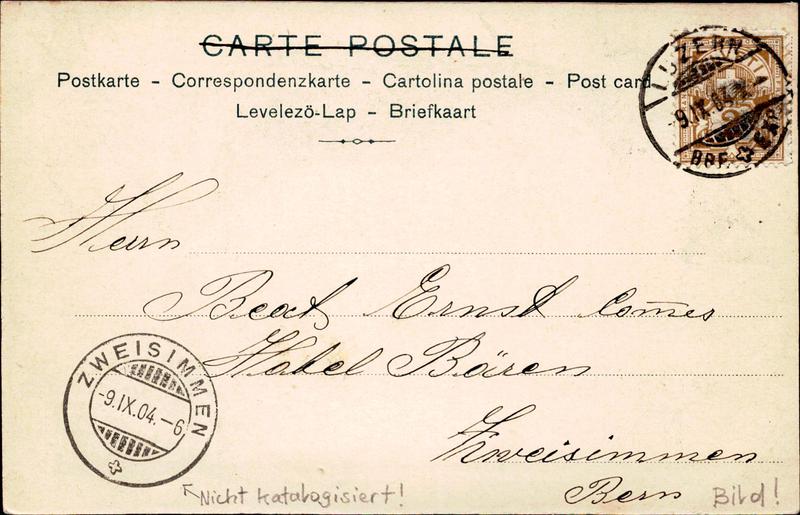 CARTE POSTALE
Postkarte - Correspondenzkarte - Cartolina postale - Post card
Levelezö-Lap - Briefkaart
LUZERN
-9.IX.04.
BRF. EXP.
Herrn
Beat Ernst Comes
Hotel Bären
ZWEISIMMEN
-9.IX.04.-6
Zweisimmen
Bern
Nicht katalogisiert!
Bild!